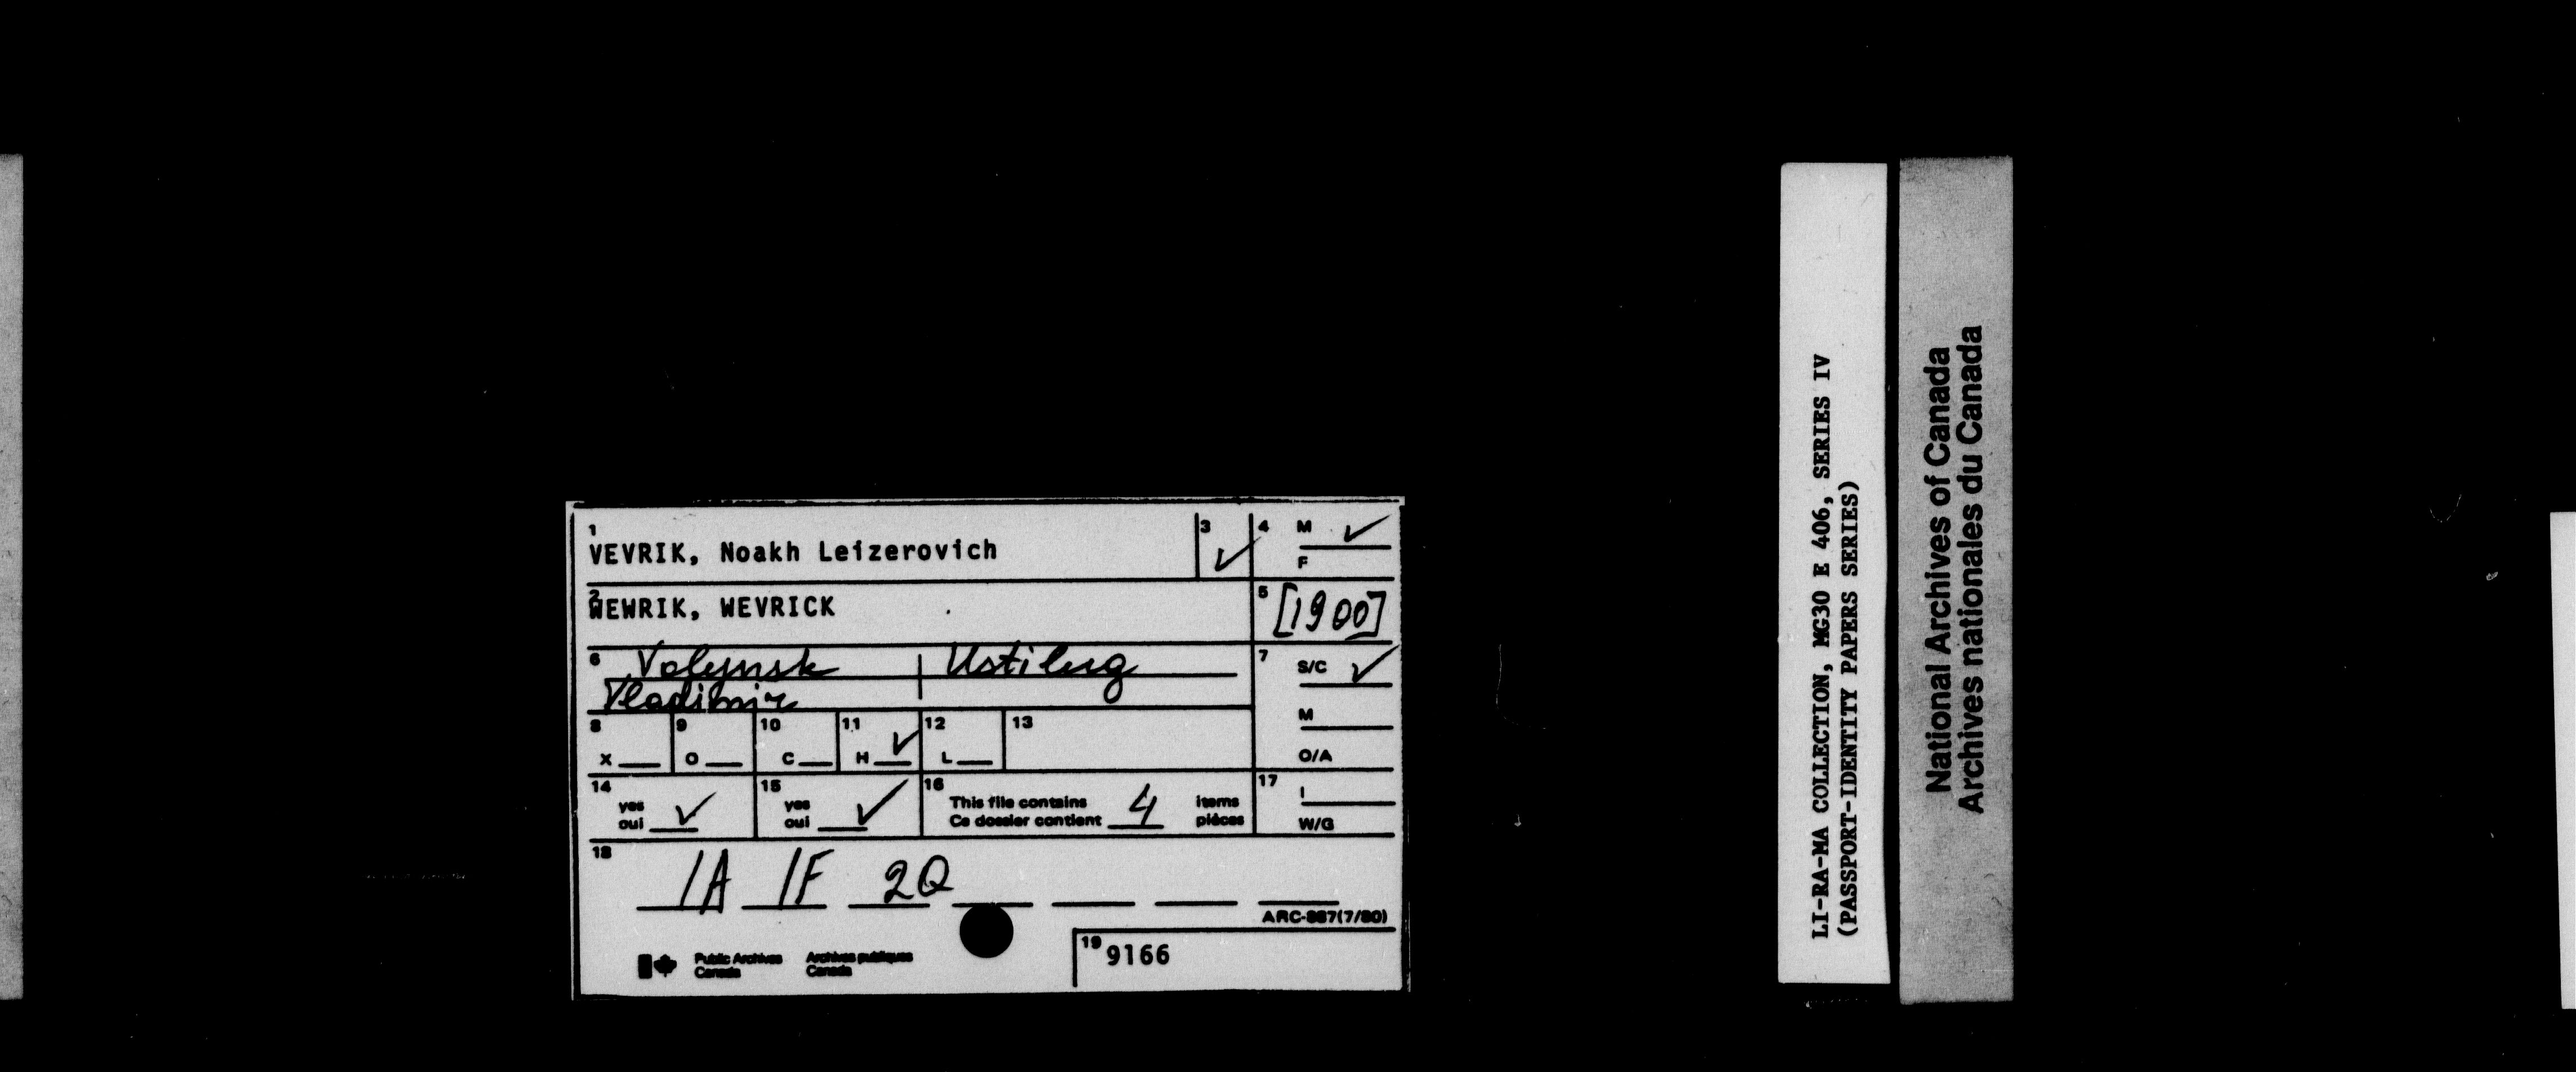 1
VEVRIK, Noakh Leizerovich
3 ✓
4 M ✓
F
2
WEWRIK, WEVRICK
5 [1900]
6 Volynsk Ustilug
Vladimir
7 S/C ✓
M
O/A
8 X
9 O
10 C
11 H ✓
12 L
13
14 yes
oui ✓
15 yes
oui ✓
16 This file contains 4 items
Ce dossier contient pièces
17 I
W/G
18 1A 1F 2Q
ARC-867(7/80)
Public Archives Archives publiques
Canada Canada
19 9166
LI-RA-MA COLLECTION, MG30 E 406, SERIES IV
(PASSPORT-IDENTITY PAPERS SERIES)
National Archives of Canada
Archives nationales du Canada